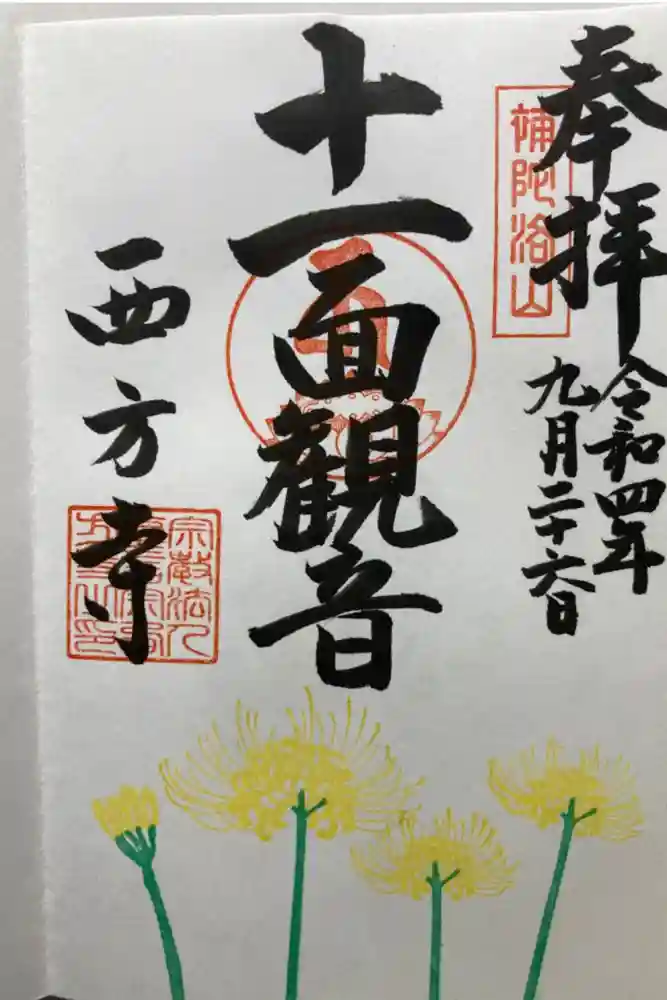 奉拝
令和四年
九月二十六日
補陀洛山
十一面観音
西方寺
宗教法人